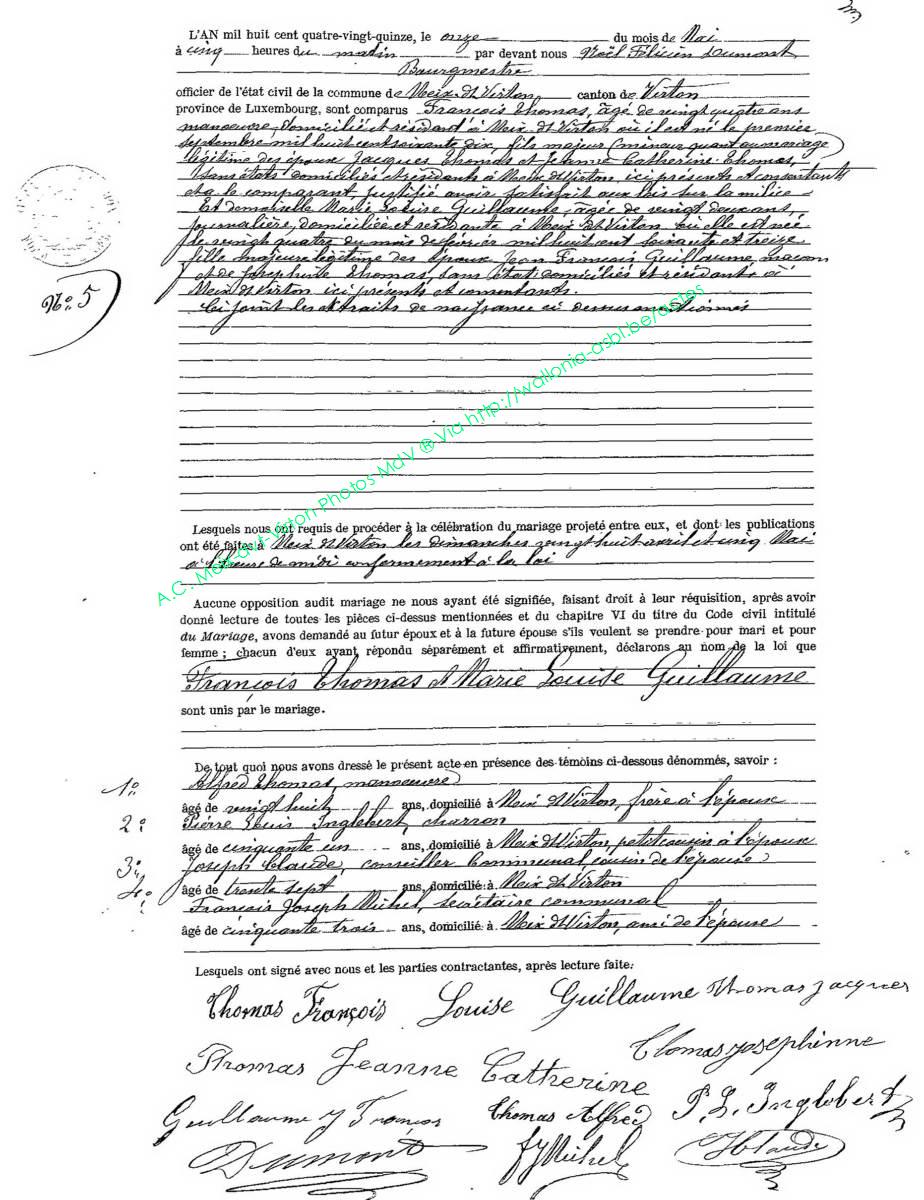 L'AN mil huit cent quatre-vingt-quinze, le onze du mois de Mai
à cinq heures du matin par devant nous Noël Félicien Dumont
Bourgmestre
officier de l'état civil de la commune de Meix dt Virton, canton de Virton
province de Luxembourg, sont comparus François Thomas, âgé de vingt quatre ans
manoeuvre, domicilié et résidant à Meix dt Virton où il est né le premier
septembre mil huit cent soixante dix, fils majeur (mineur quant au mariage)
légitime des époux Jacques Thomas et Jeanne Catherine Thomas,
sans états domiciliés et résidants à Meix dt Virton, ici présents et consentants
et a le comparant justifié avoir satisfait aux lois sur la milice
Et demoiselle Marie Louise Guillaume, âgée de vingt deux ans,
journalière, domiciliée et résidante à Meix dt Virton où elle est née
le vingt quatre du mois de février mil huit cent soixante et treize
fille majeure légitime des époux Jean François Guillaume, maçon
et de Josephine Thomas, sans état domiciliés et résidants à
Meix dt Virton ici présents et consentants.
No: 5
Ci joint les extraits de naissance ci dessus mentionnés
Lesquels nous ont requis de procéder à la célébration du mariage projeté entre eux, et dont les publications
ont été faites à Meix dt Virton les dimanches vingt huit avril et cinq Mai
à l'heure de midi conformément à la loi
Aucune opposition audit mariage ne nous ayant été signifiée, faisant droit à leur réquisition, après avoir
donné lecture de toutes les pièces ci-dessus mentionnées et du chapitre VI du titre du Code civil intitulé
du Mariage, avons demandé au futur époux et à la future épouse s'ils veulent se prendre pour mari et pour
femme ; chacun d'eux ayant répondu séparément et affirmativement, déclarons au nom de la loi que
François Thomas et Marie Louise Guillaume
sont unis par le mariage.
De tout quoi nous avons dressé le présent acte en présence des témoins ci-dessous dénommés, savoir :
1o: Alfred Thomas, manoeuvre
âgé de vingt huit ans, domicilié à Meix dt Virton, frère à l'époux
2o: Pierre Louis Inglebert, charron
âgé de cinquante un ans, domicilié à Meix dt Virton, petit cousin à l'épouse
3o: Joseph Claude, conseiller Communal cousin de l'épouse
âgé de trente sept ans, domicilié à Meix dt Virton
4o: François Joseph Michel, secrétaire communal
âgé de cinquante trois ans, domicilié à Meix dt Virton, ami de l'épouse
Lesquels ont signé avec nous et les parties contractantes, après lecture faite:
Thomas François Louise Guillaume Thomas Jacques
Thomas Jeanne Catherine Thomas Josephinne
Guillaume J François Thomas Alfred P. L. Inglebert
Dumont FJ Michel J Claude
A.C. Meix-dvt-Virton Photos MdV ® Via http://wallonia-asbl.be/actes